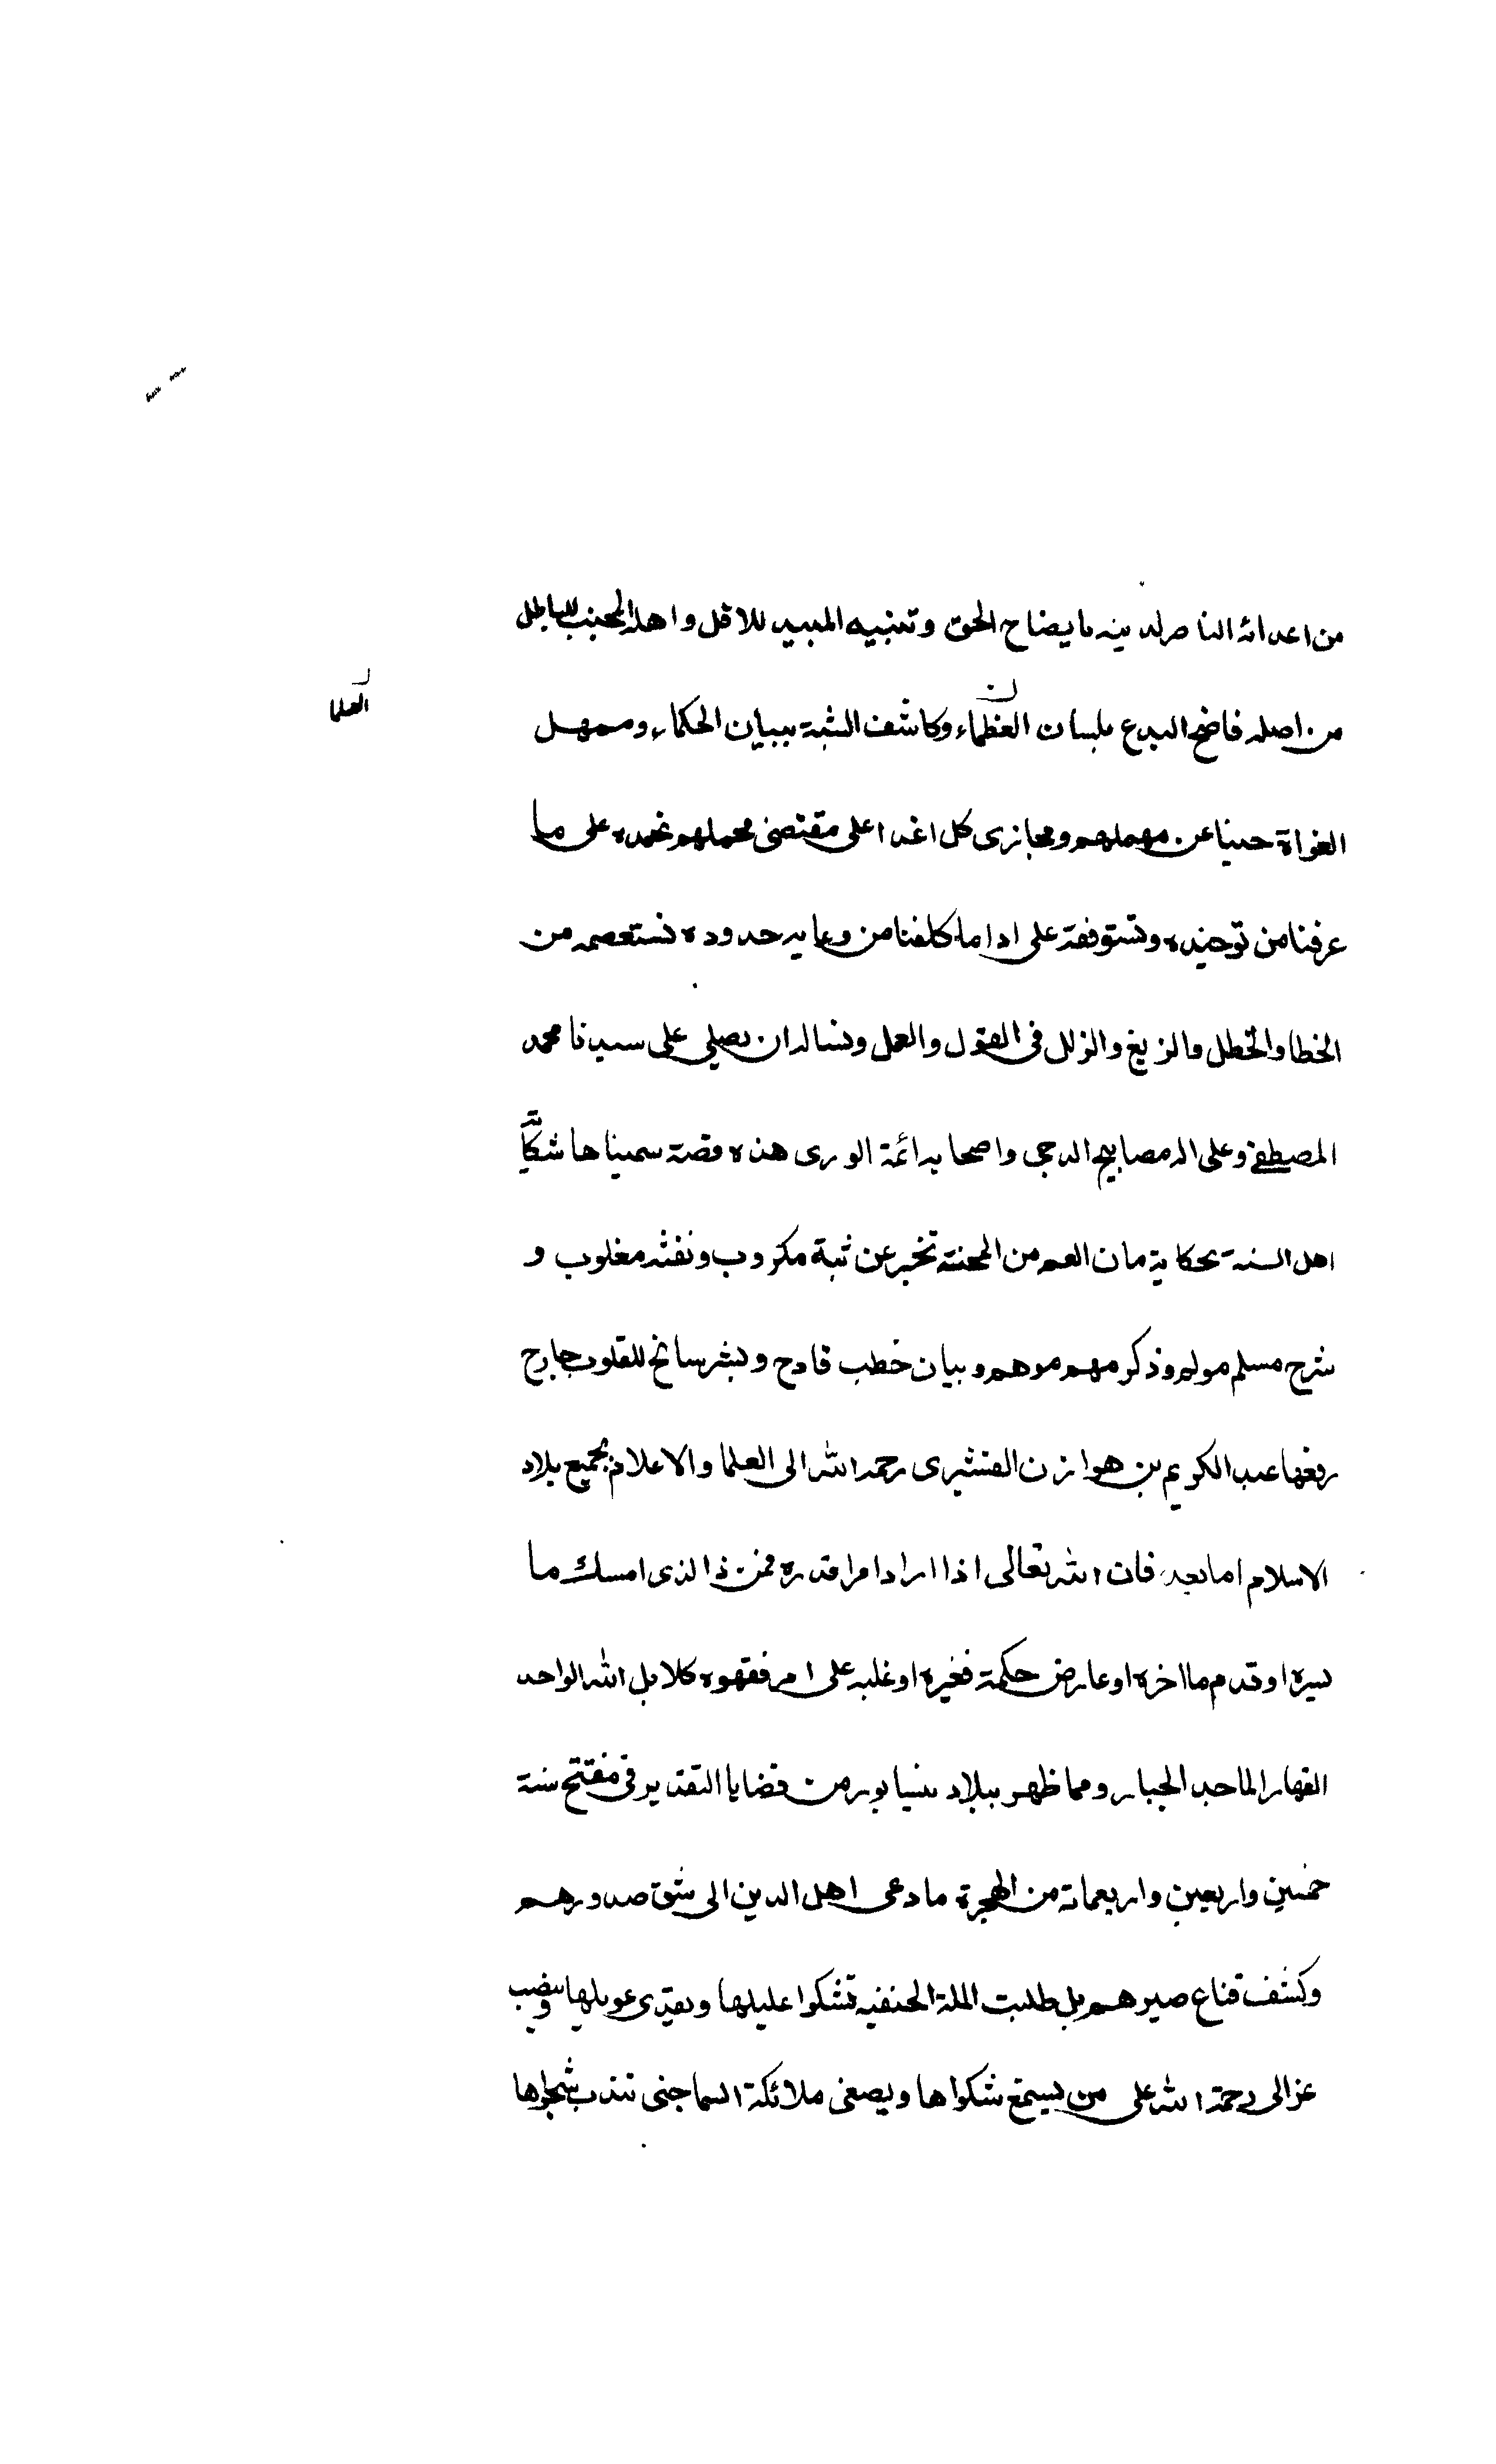 من اعدائه الناصر لدينه بايضاح الحق وتبيينه المبيد للافك واهله المجتب للباطل
من اصله فاضح البدع بلسان العظماء وكاشف الشبة ببيان الحكماء وممهل
العلما
الغواة حينا عن مهملهم ومجازى كل اغدا على مقتضى محملهم نحمده على ما
عرفنا من توحيده ونستوفقه على ادا ما كلفنا من رعايه حدوده نستعصمه من
الخطا والخطل والزيغ والزلل فى القول والعمل ونساله ان يصلى على سيدنا محمد
المصطفى وعلى اله مصابيح الدجى واصحابه ائمة الورى هذه قصة سميناها شكاية
اهل السنة بحكاية مان العم من المحنة تخبر عن ثبة مكروب ونفثه مغلوب و
شرح مسلم مولم وذكر مهم موهم وبيان خطب فادح وبشر سانح للقلوب جارح
رفعها عبد الكريم بن هوازن القشيرى رحمه الله الى العلما والاعلام بجميع بلاد
الاسلام اما بعد فان الله تعالى اذا اراد امرا قدره فمن ذا لذى امسك ما
سيره او قدم ما اخره او عارض حكمة فغيره او غلبه على امر فقهوه كلا بل الله الواحد
القهار الماجد الجبار ومما ظهر ببلاد نيسابور من قضايا التقدير فى مفتتح سنة
خمسين واربعين واربعمائة من الهجرة ما دعى اهل الدين الى شق صدورهم
وكشف قناع صبرهم بل ظلت الملة الحنفيه تشكوا غليلها وتبدى عويلها وتنصب
عزالى رحمة الله على من يستمع شكواها ويصغى ملائكة السما حتى تندب شجواها